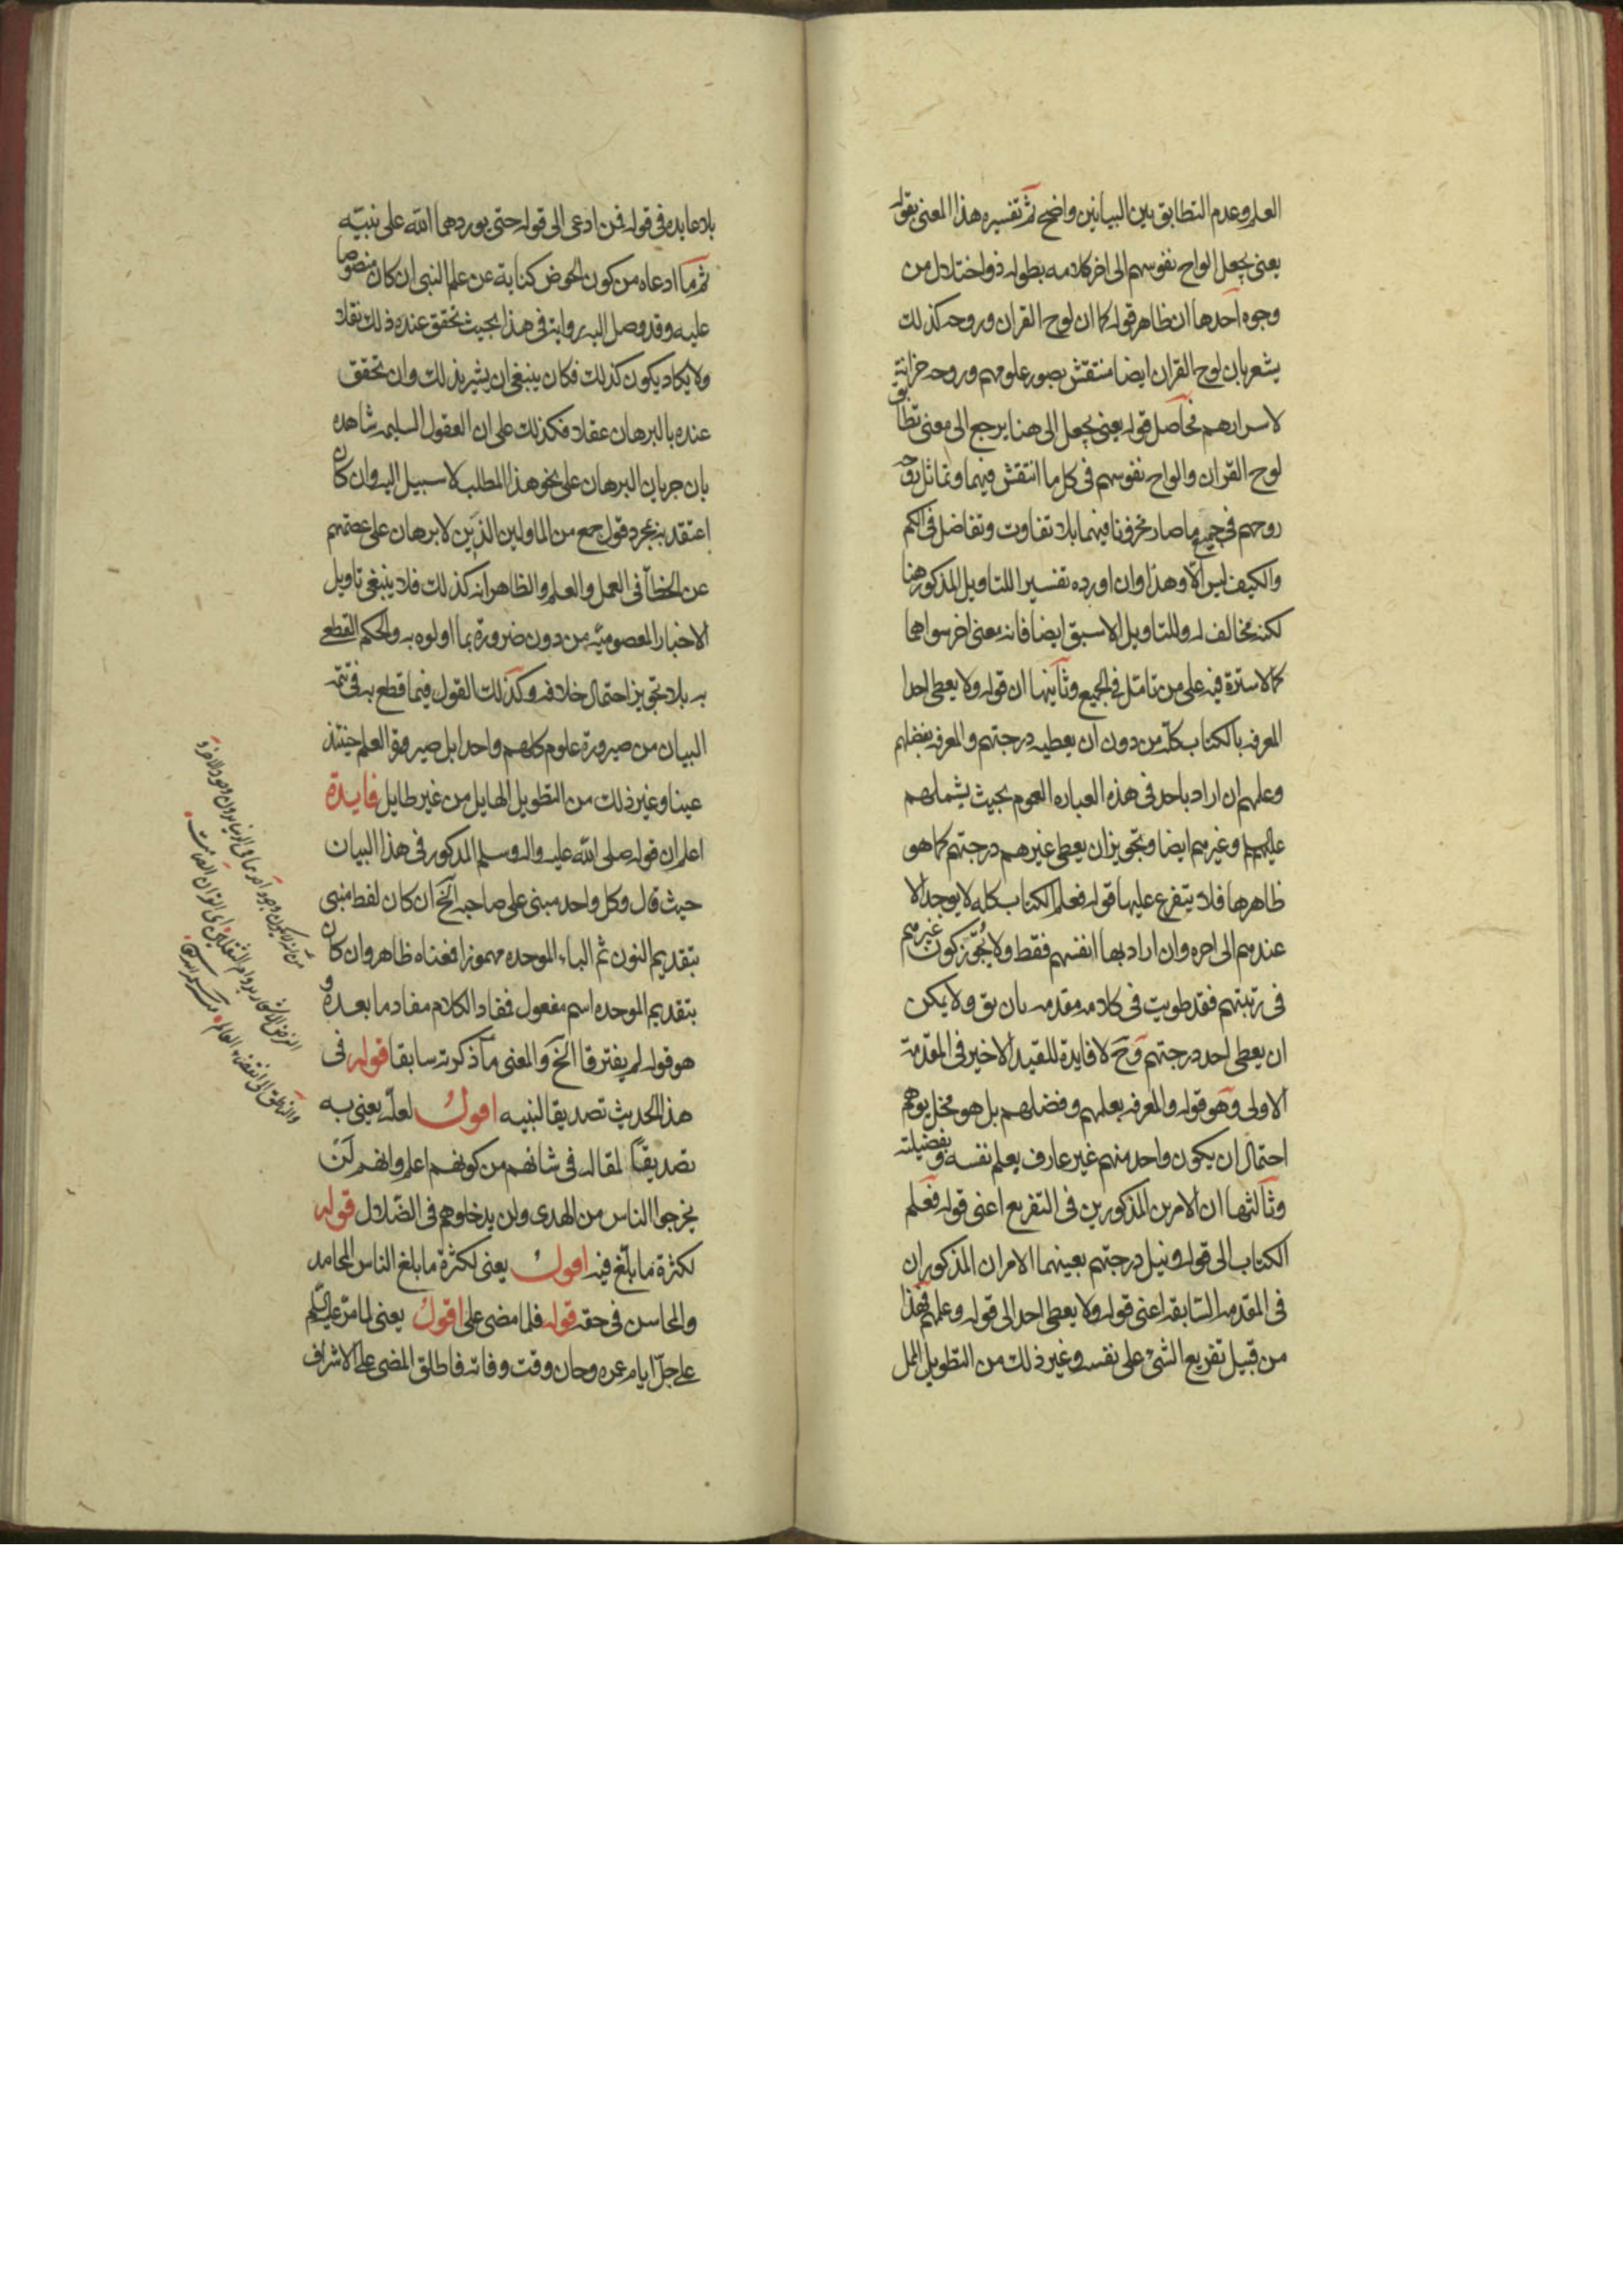 العلم وعدم التطابق بين البيانين واضح ثم تفسيره هذا المعنى بقوله
يعنى يجعل الواح نفوسهم الى اخر كلامه بطوله ذو اختلال من
وجوه احدها ان ظاهر قوله كما ان لوح القران وروحه كذلك
يشعر بان لوح القران ايضا منتقش بصور علومهم وروحه خزانة
لاسرارهم فحاصل قوله يعنى يجعل الى هنا يرجع الى معنى تطابق
لوح القران والواح نفوسهم فى كل ما انتقش فيهما وتماثل روحه
روحهم فى جميع ما صار مخزونا فيهما بلا تفاوت وتفاضل فى الكم
والكيف ليس الا وهذا وان اورده تفسيرا للتاويل المذكور هنا
لكنه مخالف له وللتاويل الاسبق ايضا فانه معنى اخر سواهما
كما لا سترة فيه على من تامل فى الجميع وثانيها ان قوله ولا يعطى احدا
المعرفه بالكتاب كله من دون ان يعطيه درجتهم والمعرفه بفضلهم
وعلمهم ان اراد باحد فى هذه العباره العموم بحيث يشملهم
عليهم وغيرهم ايضا وتجويز ان يعطى غيرهم درجتهم كما هو
ظاهرها فلا يتفرع عليها قوله فعلم الكتاب كله لا يوجد الا
عندهم الى اخره وان اراد بها انفسهم فقط ولا يجوّز كون غيرهم
فى رتبتهم فقد طويت فى كلامه مقدمه بان يق ولا يمكن
ان يعطى احد درجتهم وح لا فايدة للقيد الاخير فى المقدمة
الاولى وهو قوله والمعرفه بعلمهم وفضلهم بل هو مخل يوهم
احتمال ان يكون واحد منهم غير عارف بعلم نفسه وبفضيلته
وثالثها ان الامرين المذكورين فى التفريع اعنى قوله فعلم
الكتاب الى قوله ونيل درجتهم بعينهما الامران المذكوران
فى المقدمه السّابقه اعنى قوله ولا يعطى احد الى قوله وعلمهم فهذا
من قبيل تفريع الشئ على نفسه وغير ذلك من التطويل الممل
بلا عايده فى قوله فمن ادعى الى قوله حتى يوردهما الله على نبيّه
ثم ما ادعاه من كون الحوض كناية عن علم النبى ان كان منصوصا
عليه وقد وصل اليه رواية فى هذا بحيث تحقق عنده ذلك نقلا
ولا يكاد يكون كذلك فكان ينبغى ان يشير بذلك وان تحقق
عنده بالبرهان عقلا فكذلك على ان العقول السليمه شاهده
بان جريان البرهان على نحو هذا المطلب لا سبيل اليه وان كان
اعتقد به بمجرد قول جمع من الماولين الذين لا برهان على عصمتهم
عن الخطأ فى العمل والعلم والظاهر انه كذلك فلا ينبغى تاويل
الاخبار المعصوميّه من دون ضرورة بما اولوه به والحكم القطعى
به بلا تجويز احتمال خلافه وكذلك القول فيما قطع به فى تتمه
البيان من صيرورة علوم كلهم واحدا بل صيرورة العلم حينئذ
عينا وغير ذلك من التطويل الهايل من غير طايل فايدة
اعلم ان قوله صلى الله عليه واله وسلم المذكور فى هذا البيان
حيث قال وكل واحد مبنى على صاحبه الخ ان كان لفظ منبى
بتقديم النون ثم الباء الموحده مهموزا فمعناه ظاهر وان كان
بتقديم الموحده اسم مفعول فمفاد الكلام مفاد ما بعده و
هو قوله لم يفترقا الخ والمعنى ما ذكرته سابقا قوله فى
هذا الحديث تصديقا لنبيه اقول لعله يعنى به
تصديقاً لمقاله فى شانهم من كونهم اعلم وانهم لن
يخرجوا الناس من الهدى ولن يدخلوهم فى الضلال قوله
لكثرة ما بلّغ فيه اقول يعنى لكثرة ما بلغ الناس المحامد
والمحاسن فى حقه قوله فلما مضى على اقول يعنى لما مرّ عليه السّلم
على جلّ ايام عمره وحان وقت وفاته فاطلق المضى على الاشراف